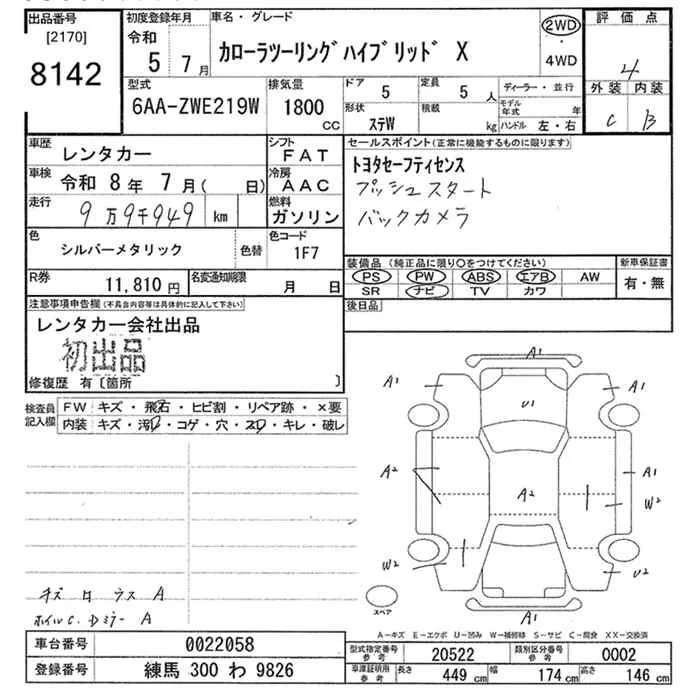 出品番号
[2170]
8142
初度登録年月
令和
5 7月
車名・グレード
カローラツーリングハイブリッド X
2WD
・
4WD
評価点
4
外装 内装
C B
型式
6AA-ZWE219W
排気量
1800
CC
ドア
5
定員
5 人
形状
ステW
積載
kg
ディーラー・並行
モデル年式 年
ハンドル 左・右
車歴
レンタカー
シフト
FAT
車検 令和 8年 7月( 日)
冷房
AAC
走行
9万9千949 km
燃料
ガソリン
色
シルバーメタリック
色替
色コード
1F7
R券
11,810 円
名変通知期限
月 日
セールスポイント(正常に機能するものに限ります)
トヨタセーフティセンス
プッシュスタート
バックカメラ
装備品 (純正品に限り○をつけてください)
新車保証書
PS PW ABS エアB AW
SR ナビ TV カワ
有・無
後日品
注意事項申告欄(不具合内容等は具体的に記入して下さい)
レンタカー会社出品
初出品
修復歴 有〔箇所 〕
検査員
記入欄
FW キズ・飛石・ヒビ割・リペア跡・×要
内装 キズ・汚・コゲ・穴・スレ・キレ・破レ
A1
A1 A1
U1
A2 A1
A2
W2
W2 U2
A1
スペア
キズ
A
ホイルC. Dミラー A
A-キズ E-エクボ U-凹み W-補修跡 S-サビ C-腐食 XX-交換済
車台番号 0022058
登録番号 練馬 300 わ 9826
型式指定番号
参考
20522
類別区分番号
参考
0002
車庫証明用
参考
長さ 449 cm 幅 174 cm 高さ 146 cm